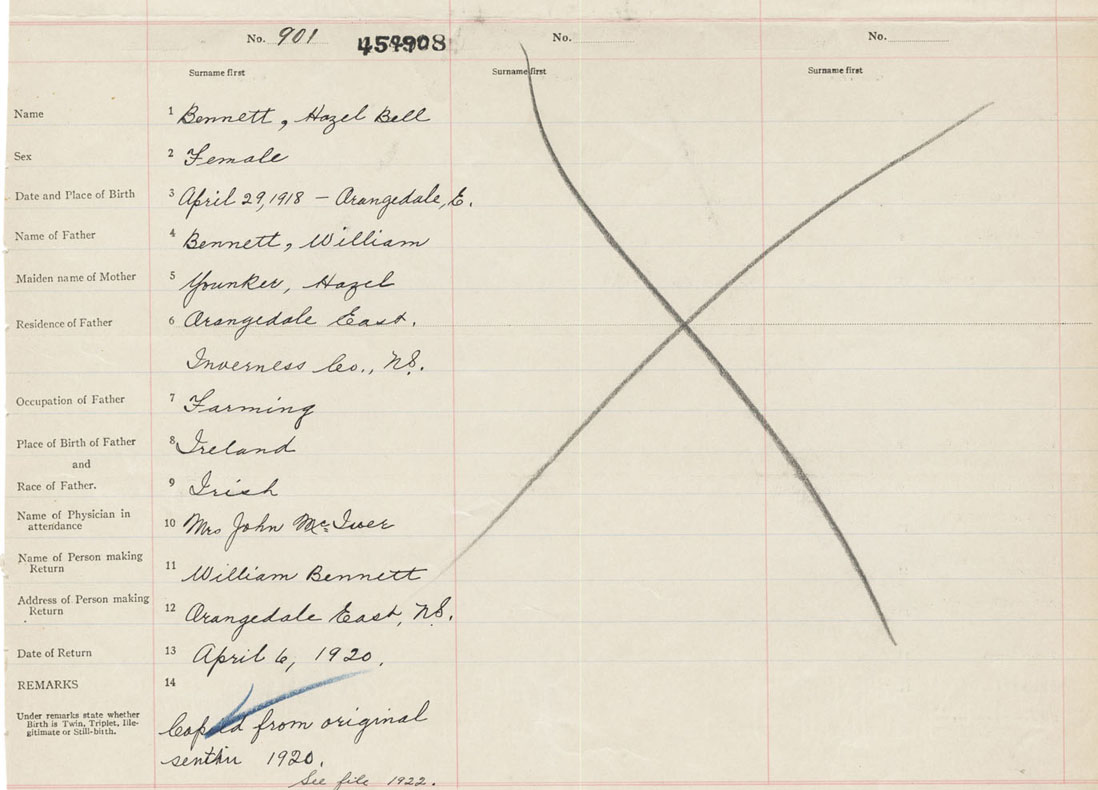 No. 901 454908 No. No.
Surname first Surname first Surname first
Name 1 Bennett, Hazel Bell
Sex 2 Female
Date and Place of Birth 3 April 29, 1918 – Orangedale, E.
Name of Father 4 Bennett, William
Maiden name of Mother 5 Younker, Hazel
Residence of Father 6 Orangedale East.
Inverness Co., N.S.
Occupation of Father 7 Farming
Place of Birth of Father 8 Ireland
and
Race of Father. 9 Irish
Name of Physician in
attendance 10 Mrs John McIver
Name of Person making
Return 11 William Bennett
Address of Person making
Return 12 Orangedale East, N.S.
Date of Return 13 April 6, 1920.
REMARKS 14
Under remarks state whether
Birth is Twin, Triplet, Ille-
gitimate or Still-birth.
Copied from original
sent in 1920.
See file 1922.